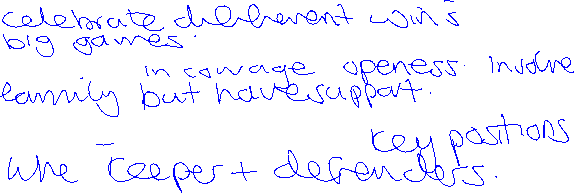 celebrate different wins
big games.
incourage openess. involve
family but have support.
key positions
like - keeper + defenders.